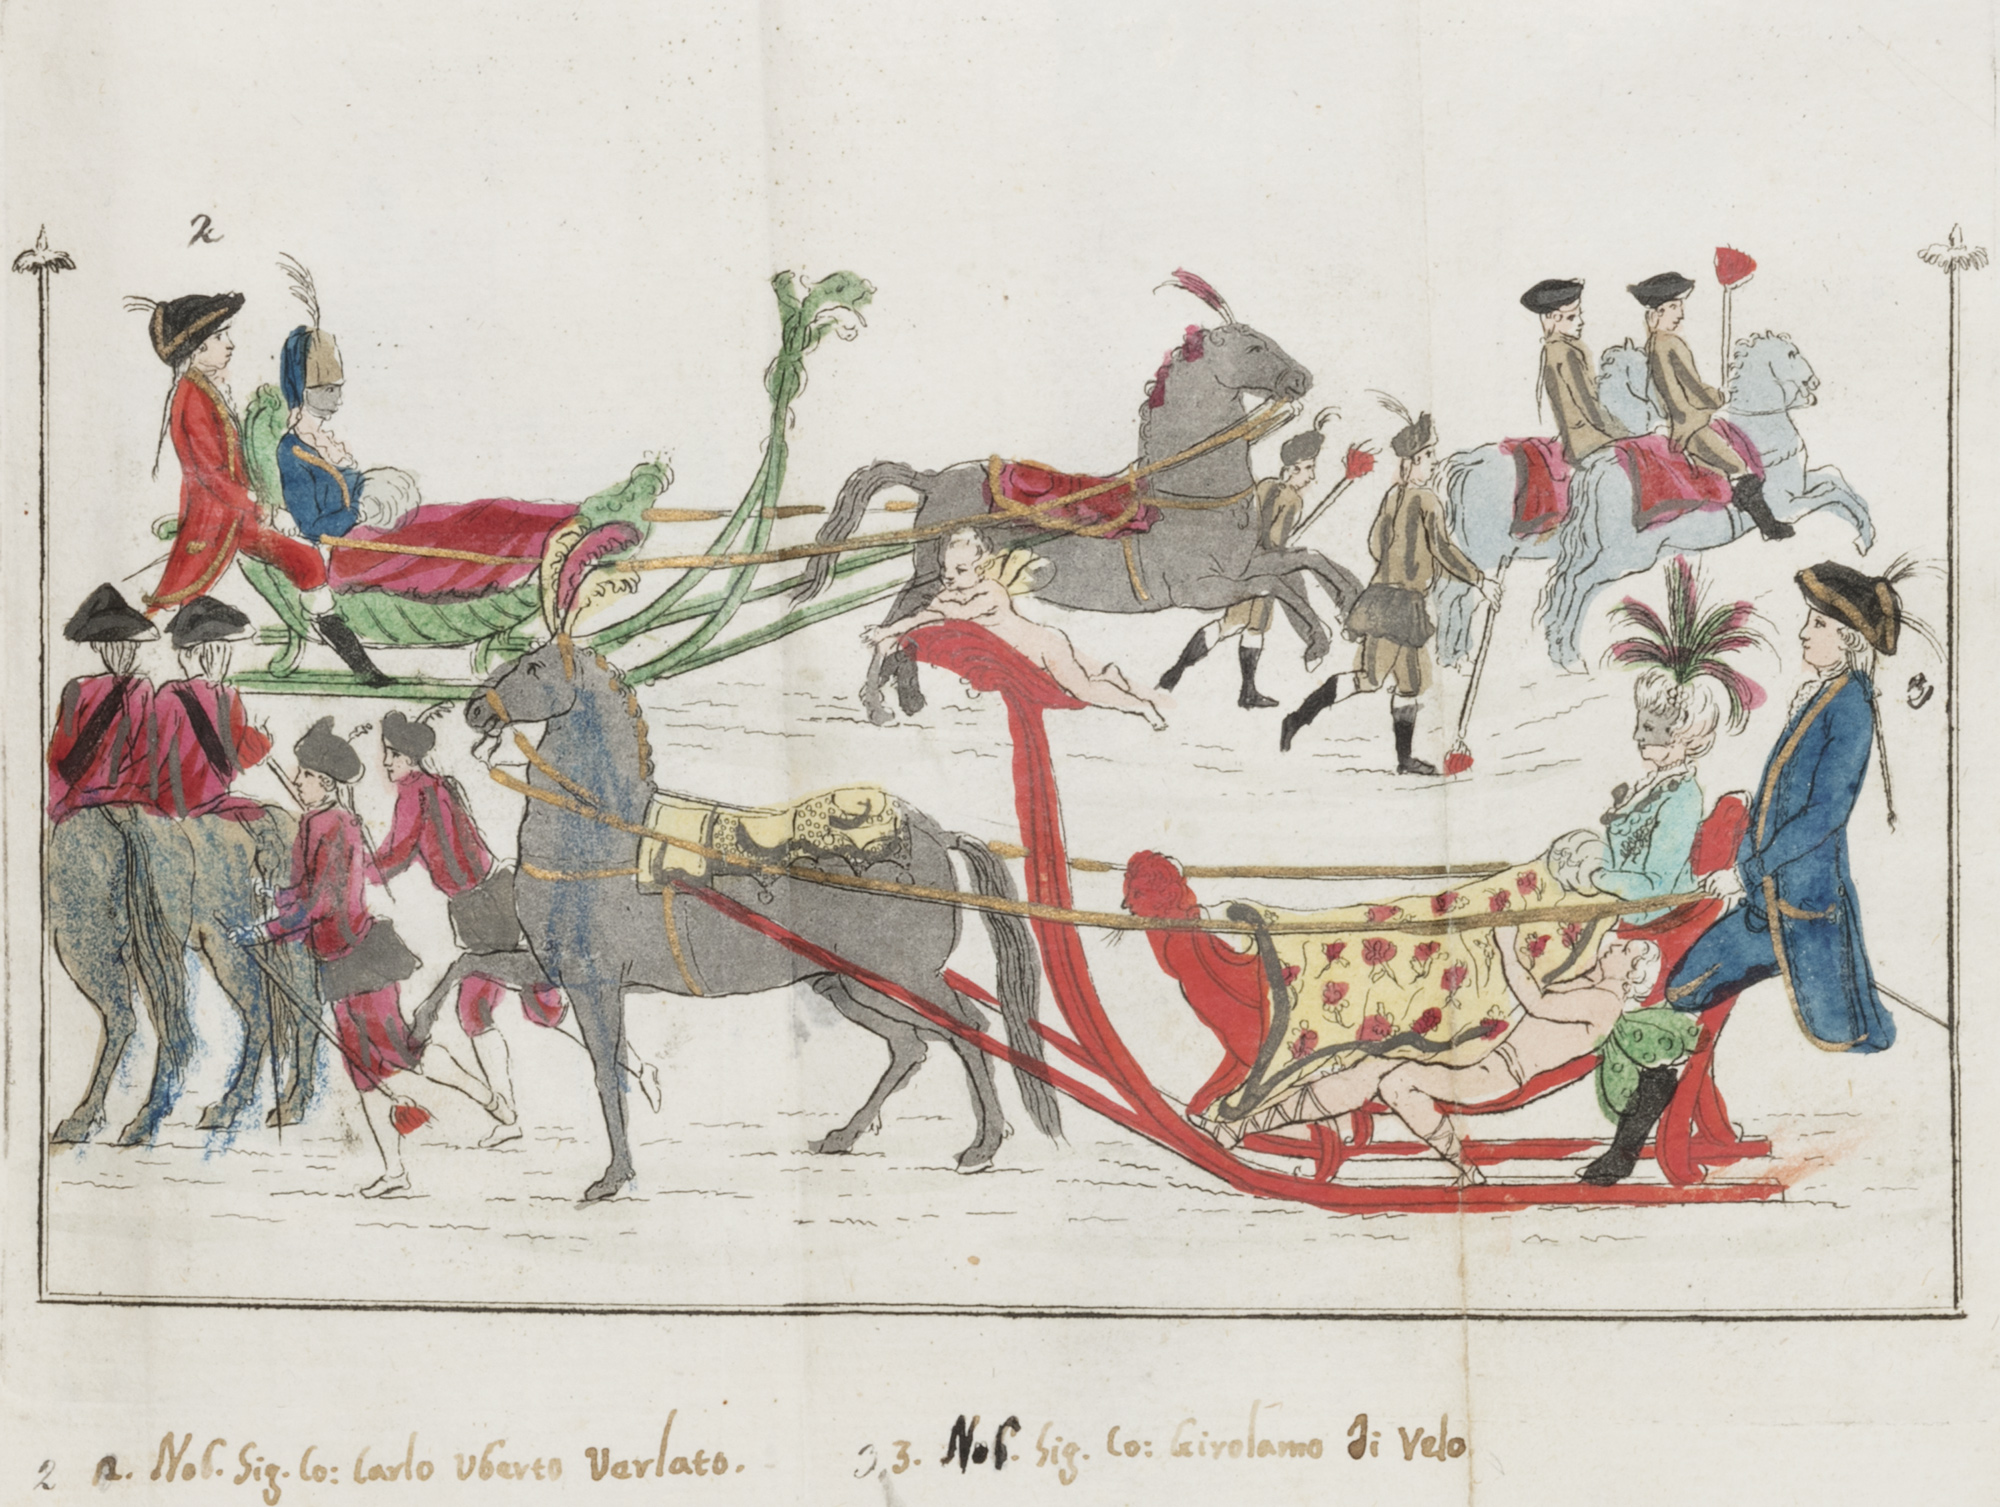 2
3
2 2. Nob. Sig. Co: Carlo Uberto Verlato.
3, 3. Nob. Sig. Co: Girolamo di Velo